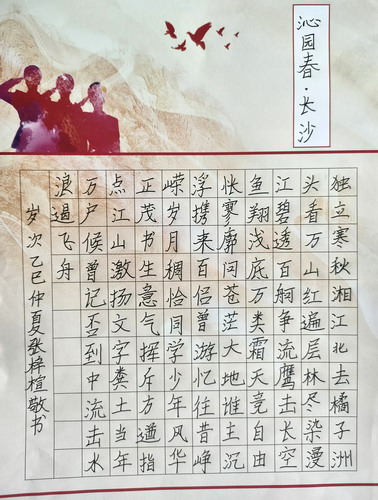 沁园春·长沙
独立寒秋湘江北去橘子洲
头看万山红遍层林尽染漫
江碧透百舸争流鹰击长空
鱼翔浅底万类霜天竞自由
怅寥廓问苍茫大地谁主沉
浮携来百侣曾游忆往昔峥
嵘岁月稠恰同学少年风华
正茂书生意气挥斥方遒指
点江山激扬文字粪土当年
万户候曾记否到中流击水
浪遏飞舟
岁次乙巳仲夏张梓楦敬书